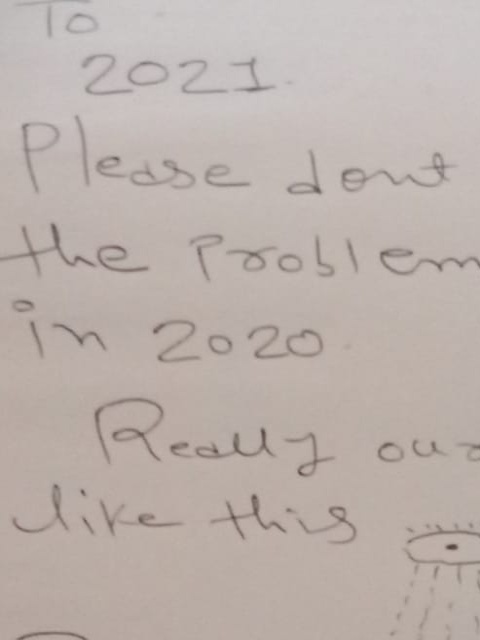 To
2021.
Please dont
the Problem
in 2020.
Really our
like this